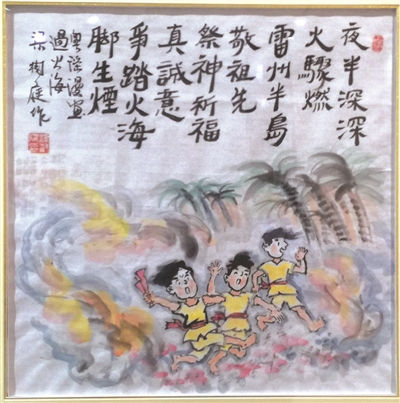 夜半深深
火驟燃
雷州半島
敬祖先
祭神祈福
真誠意
爭踏火海
脚生煙
粵謠漫畫
過火海
梁樹庭作